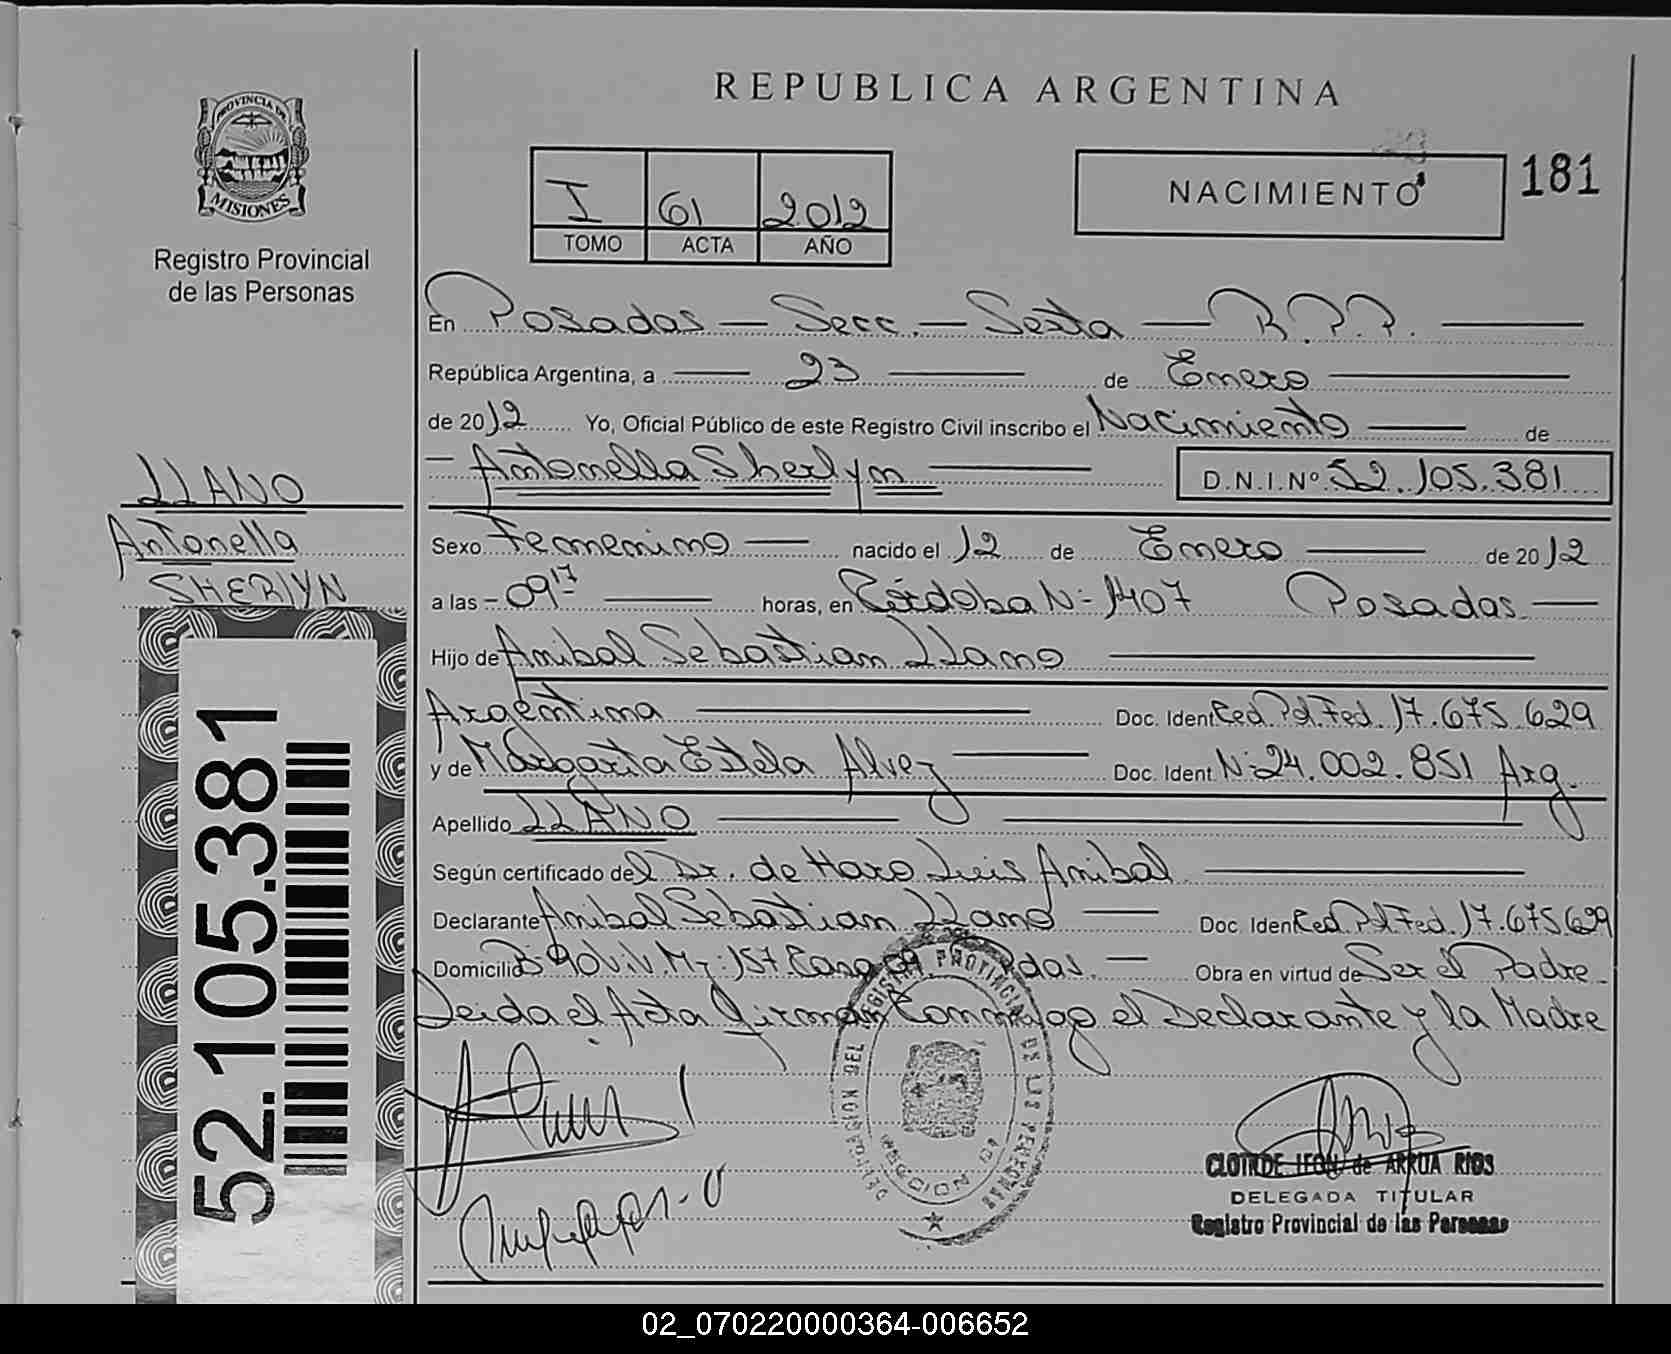 REPUBLICA ARGENTINA
PROVINCIA DE
MISIONES
Registro Provincial
de las Personas
I 61 2012
TOMO ACTA AÑO
NACIMIENTO 181
En Posadas — Secc. — Sexta — R.P.P. —
República Argentina, a — 23 — de Enero —
de 2012 Yo, Oficial Público de este Registro Civil inscribo el Nacimiento — de
— Antonella Sherlyn — D.N.I.Nº 52.105.381
LLANO
Antonella
SHERLYN
Sexo Femenino — nacido el 12 de Enero — de 2012
a las - 09 17 — horas, en Córdoba Nº 1407 Posadas —
Hijo de Anibal Sebastian LLano —
Argentina — Doc. Ident Ced. Pol. Fed. 17.675.629
y de Margarita Estela Alvez — Doc. Ident Nº 24.002.851 Arg.
Apellido LLANO —
Según certificado del Dr. de Haro Luis Anibal —
Declarante Anibal Sebastian LLano — Doc. Iden Ced. Pol. Fed. 17.675.629
Domicilio Bº 90 Viv. Mz: 157. Casa — Obra en virtud de Ser el Padre -
Leida el Acta firman Conmigo el Declarante y la Madre
52.105.381
DELEGACION DEL REGISTRO PROVINCIAL DE LAS PERSONAS
CLOTILDE LEON de ARRUA RIOS
DELEGADA TITULAR
Registro Provincial de las Personas
02_070220000364-006652